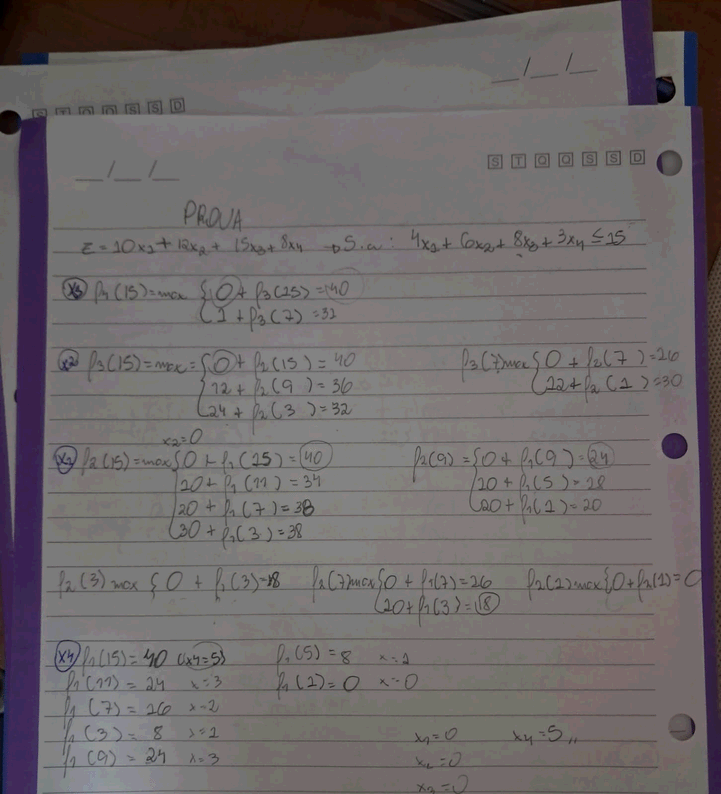 __/__/__
S T Q Q S S D
__/__/__
S T Q Q S S D
PROVA
Z = 10x1 + 12x2 + 15x3 + 8x4 → S.a: 4x1 + 6x2 + 8x3 + 3x4 ≤ 15
x3 f4(15) = max { 0 + f3(15) = 40
1 + f3(7) = 31
x2 f3(15) = max = { 0 + f2(15) = 40
12 + f2(9) = 36
24 + f2(3) = 32
f3(7) max { 0 + f2(7) = 26
12 + f2(1) = 30
x2=0
x1 f2(15) = max { 0 + f1(15) = 40
10 + f1(11) = 34
20 + f1(7) = 38
30 + f1(3) = 38
f2(9) = { 0 + f1(9) = 24
10 + f1(5) = 18
20 + f1(1) = 20
f2(3) max { 0 + f1(3) = 8 f2(7) max { 0 + f1(7) = 26 f2(1) max { 0 + f1(1) = 0
10 + f1(3) = 18
x4 f1(15) = 40 (x4=5) f1(5) = 8 x=1
f1(11) = 24 x=3 f1(1) = 0 x=0
f1(7) = 26 x=2
f1(3) = 8 x=1
f1(9) = 24 x=3
x1=0 x4=5,,
x2=0
x3=0